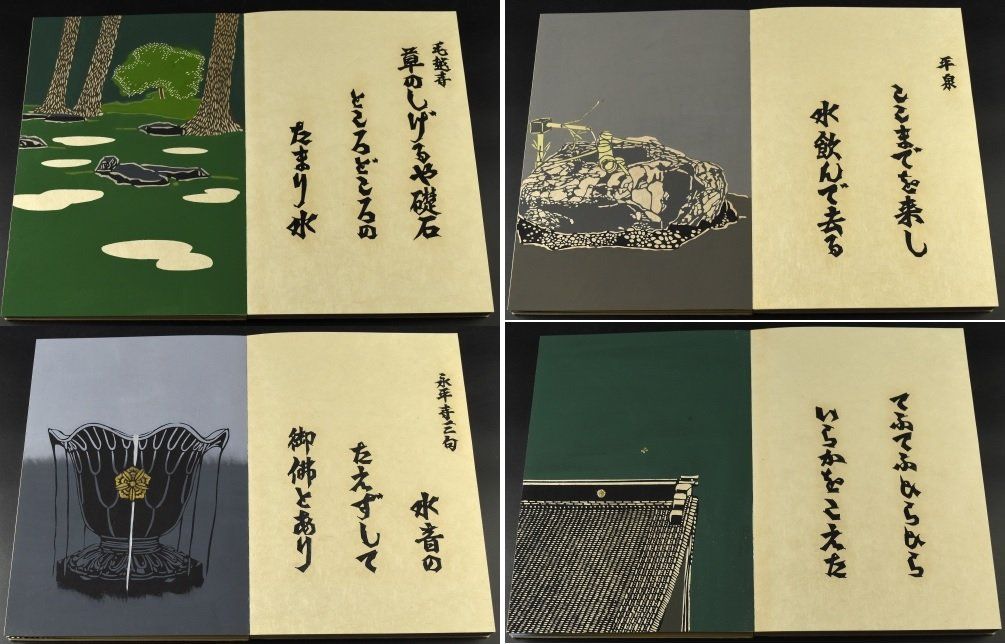 毛越寺
草のしげるや礎石
ところどころの
たまり水
平泉
ここまでを来し
水飲んで去る
永平寺三句
水音の
たえずして
御佛とあり
てふてふひらひら
いらかをこえた